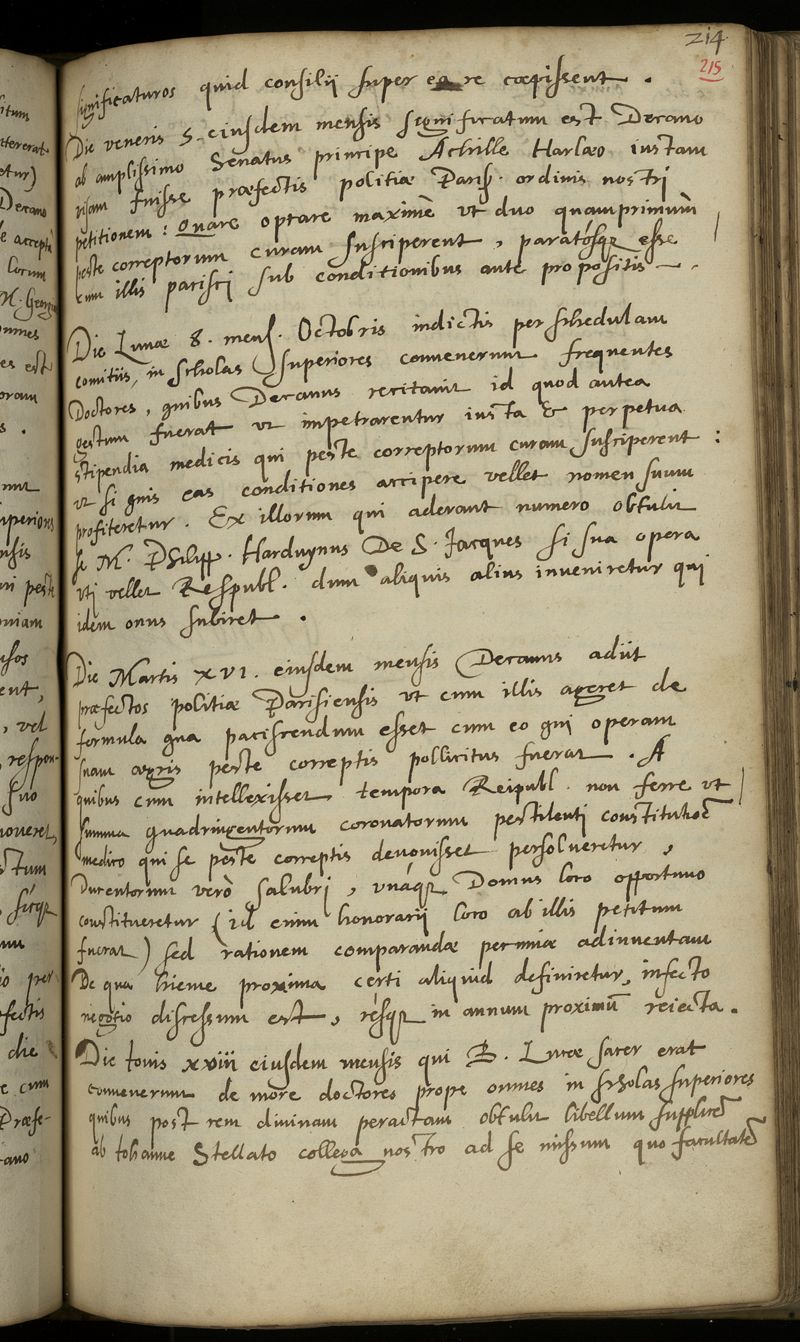 214
215
significaturos quid consilii super ea re cœpissent.
Die veneris 5. eiusdem mensis significatum est Decano
ab amplissimo Senatus principe Achille Harlæo iustam
visam fuisse præfectis politiæ Paris. ordinis nostri
petitionem: Quare optare maximè ut duo quamprimum
peste correptorum curam susciperent, paratosq̃ esse
cum illis pacisci sub conditionibus ante propositis.
Die Lunæ 8. mens. Octobris indictis per schedulam
comitiis, in scholas superiores convenerunt frequentes
Doctores, quibus Decanus recitavit id quod antea
gestum fuerat ut impetrarentur iusta & perpetua
stipendia medicis qui peste correptorum curam susciperent:
ut si quis eas conditiones accipere vellet nomen suum
profiteretur. Ex illorum qui aderant numero obtulit
se M. Philipp. Harduynus De S. Jacques si sua opera
uti vellet Respubl. dum aliquis alius inveniretur qui
idem onus subiret.
Die Martis XVI. eiusdem mensis Decanus adiit
præfectos politiæ Parisiensis ut cum illis ageret de
formula qua paciscendum esset cum eo qui operam
suam ægris peste correptis pollicitus fuerat. A
quibus cum intellexisset tempora Reipubl. non ferre ut
summa quadringentorum coronatorum pestilenti constitutioẽ
medico qui se peste correptis devovisset persolveretur,
Ducentorum verò salubri, unáq̃ Domus loco opportuno
constitueretur (id enim honorarii loco ab illis petitum
fuerat) sed rationem comparandæ pecuniæ adinventam
De qua hieme proxima certi aliquid definiretur, infecto
negotio discessum est, résq̃ in annum proximũ reiecta.
Die Iovis XVIII eiusdem mensis qui B. Lucæ sacer erat
convenerunt de more doctores prope omnes in scholas superiores
quibus post rem divinam peractam obtulit libellum supplicẽ
ab Iohanne Stellato collega nostro ad se missum quo facultatẽ